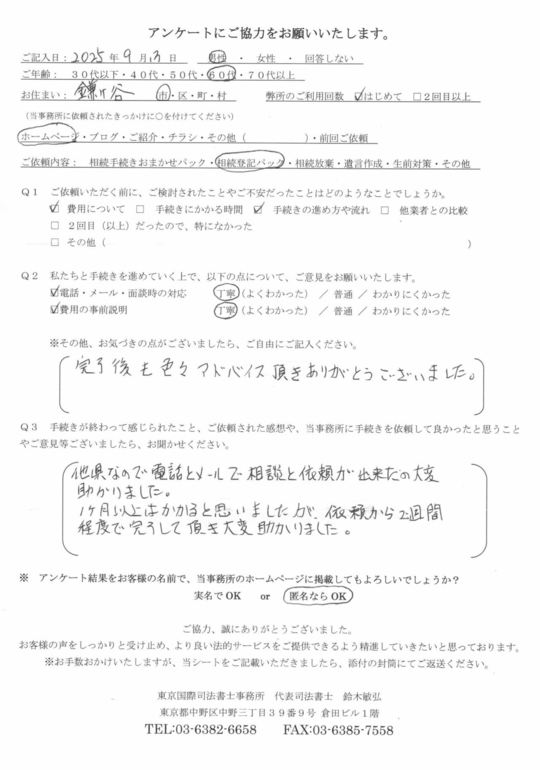 アンケートにご協力をお願いいたします。
ご記入日：2025年9月13日　男性・女性・回答しない
ご年齢：30代以下・40代・50代・60代・70代以上
お住まい：鎌ヶ谷　市・区・町・村　弊所のご利用回数　☑はじめて　□2回目以上
（当事務所に依頼されたきっかけに○を付けてください）
ホームページ・ブログ・ご紹介・チラシ・その他（　　　）・前回ご依頼
ご依頼内容：相続手続きおまかせパック・相続登記パック・相続放棄・遺言作成・生前対策・その他
Q1　ご依頼いただく前に、ご検討されたことやご不安だったことはどのようなことでしょうか。
☑　費用について　□　手続きにかかる時間　☑　手続きの進め方や流れ　□　他業者との比較
□　2回目（以上）だったので、特になかった
□　その他（　　　）
Q2　私たちと手続きを進めていく上で、以下の点について、ご意見をお願いいたします。
☑電話・メール・面談時の対応　丁寧（よくわかった）／普通／わかりにくかった
☑費用の事前説明　丁寧（よくわかった）／普通／わかりにくかった
※その他、お気づきの点がございましたら、ご自由にご記入ください。
完了後も色々アドバイス頂きありがとうございました。
Q3　手続きが終わって感じられたこと、ご依頼された感想や、当事務所に手続きを依頼して良かったと思うこと
やご意見等ございましたら、お聞かせください。
他県なので電話とメールで相談と依頼が出来たの大変
助かりました。
1ヶ月以上はかかると思いましたが、依頼から2週間
程度で完了して頂き大変助かりました。
※　アンケート結果をお客様の名前で、当事務所のホームページに掲載してもよろしいでしょうか？
実名でOK　or　匿名ならOK
ご協力、誠にありがとうございました。
お客様の声をしっかりと受け止め、より良い法的サービスをご提供できるよう精進していきたいと思っております。
※お手数おかけいたしますが、当シートをご記載いただきましたら、添付の封筒にてご返送ください。
東京国際司法書士事務所　代表司法書士　鈴木敏弘
東京都中野区中野三丁目39番9号　倉田ビル1階
TEL:03-6382-6658　FAX:03-6385-7558